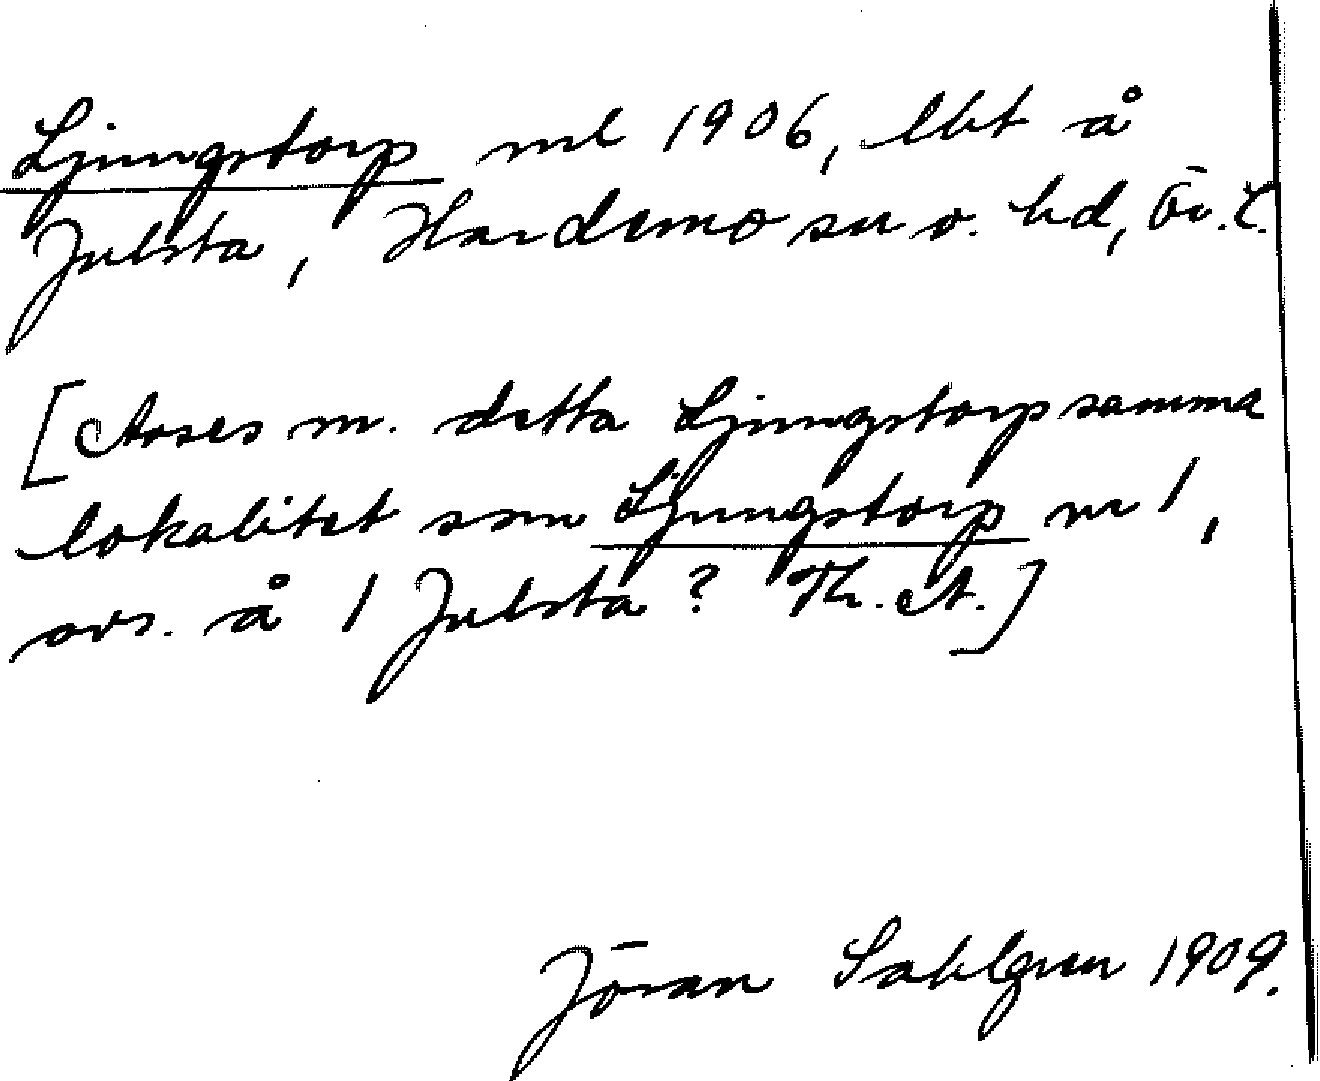 Ljungstorp ml 1906, lht å
Julsta, Hardemo sn o. hd, Ör. l.
[Avses m. detta Ljungstorp samma
lokalitet som Ljungstorp nr 1,
avs. å 1 Julsta? Th. A.]
Jöran Sahlgren 1909.